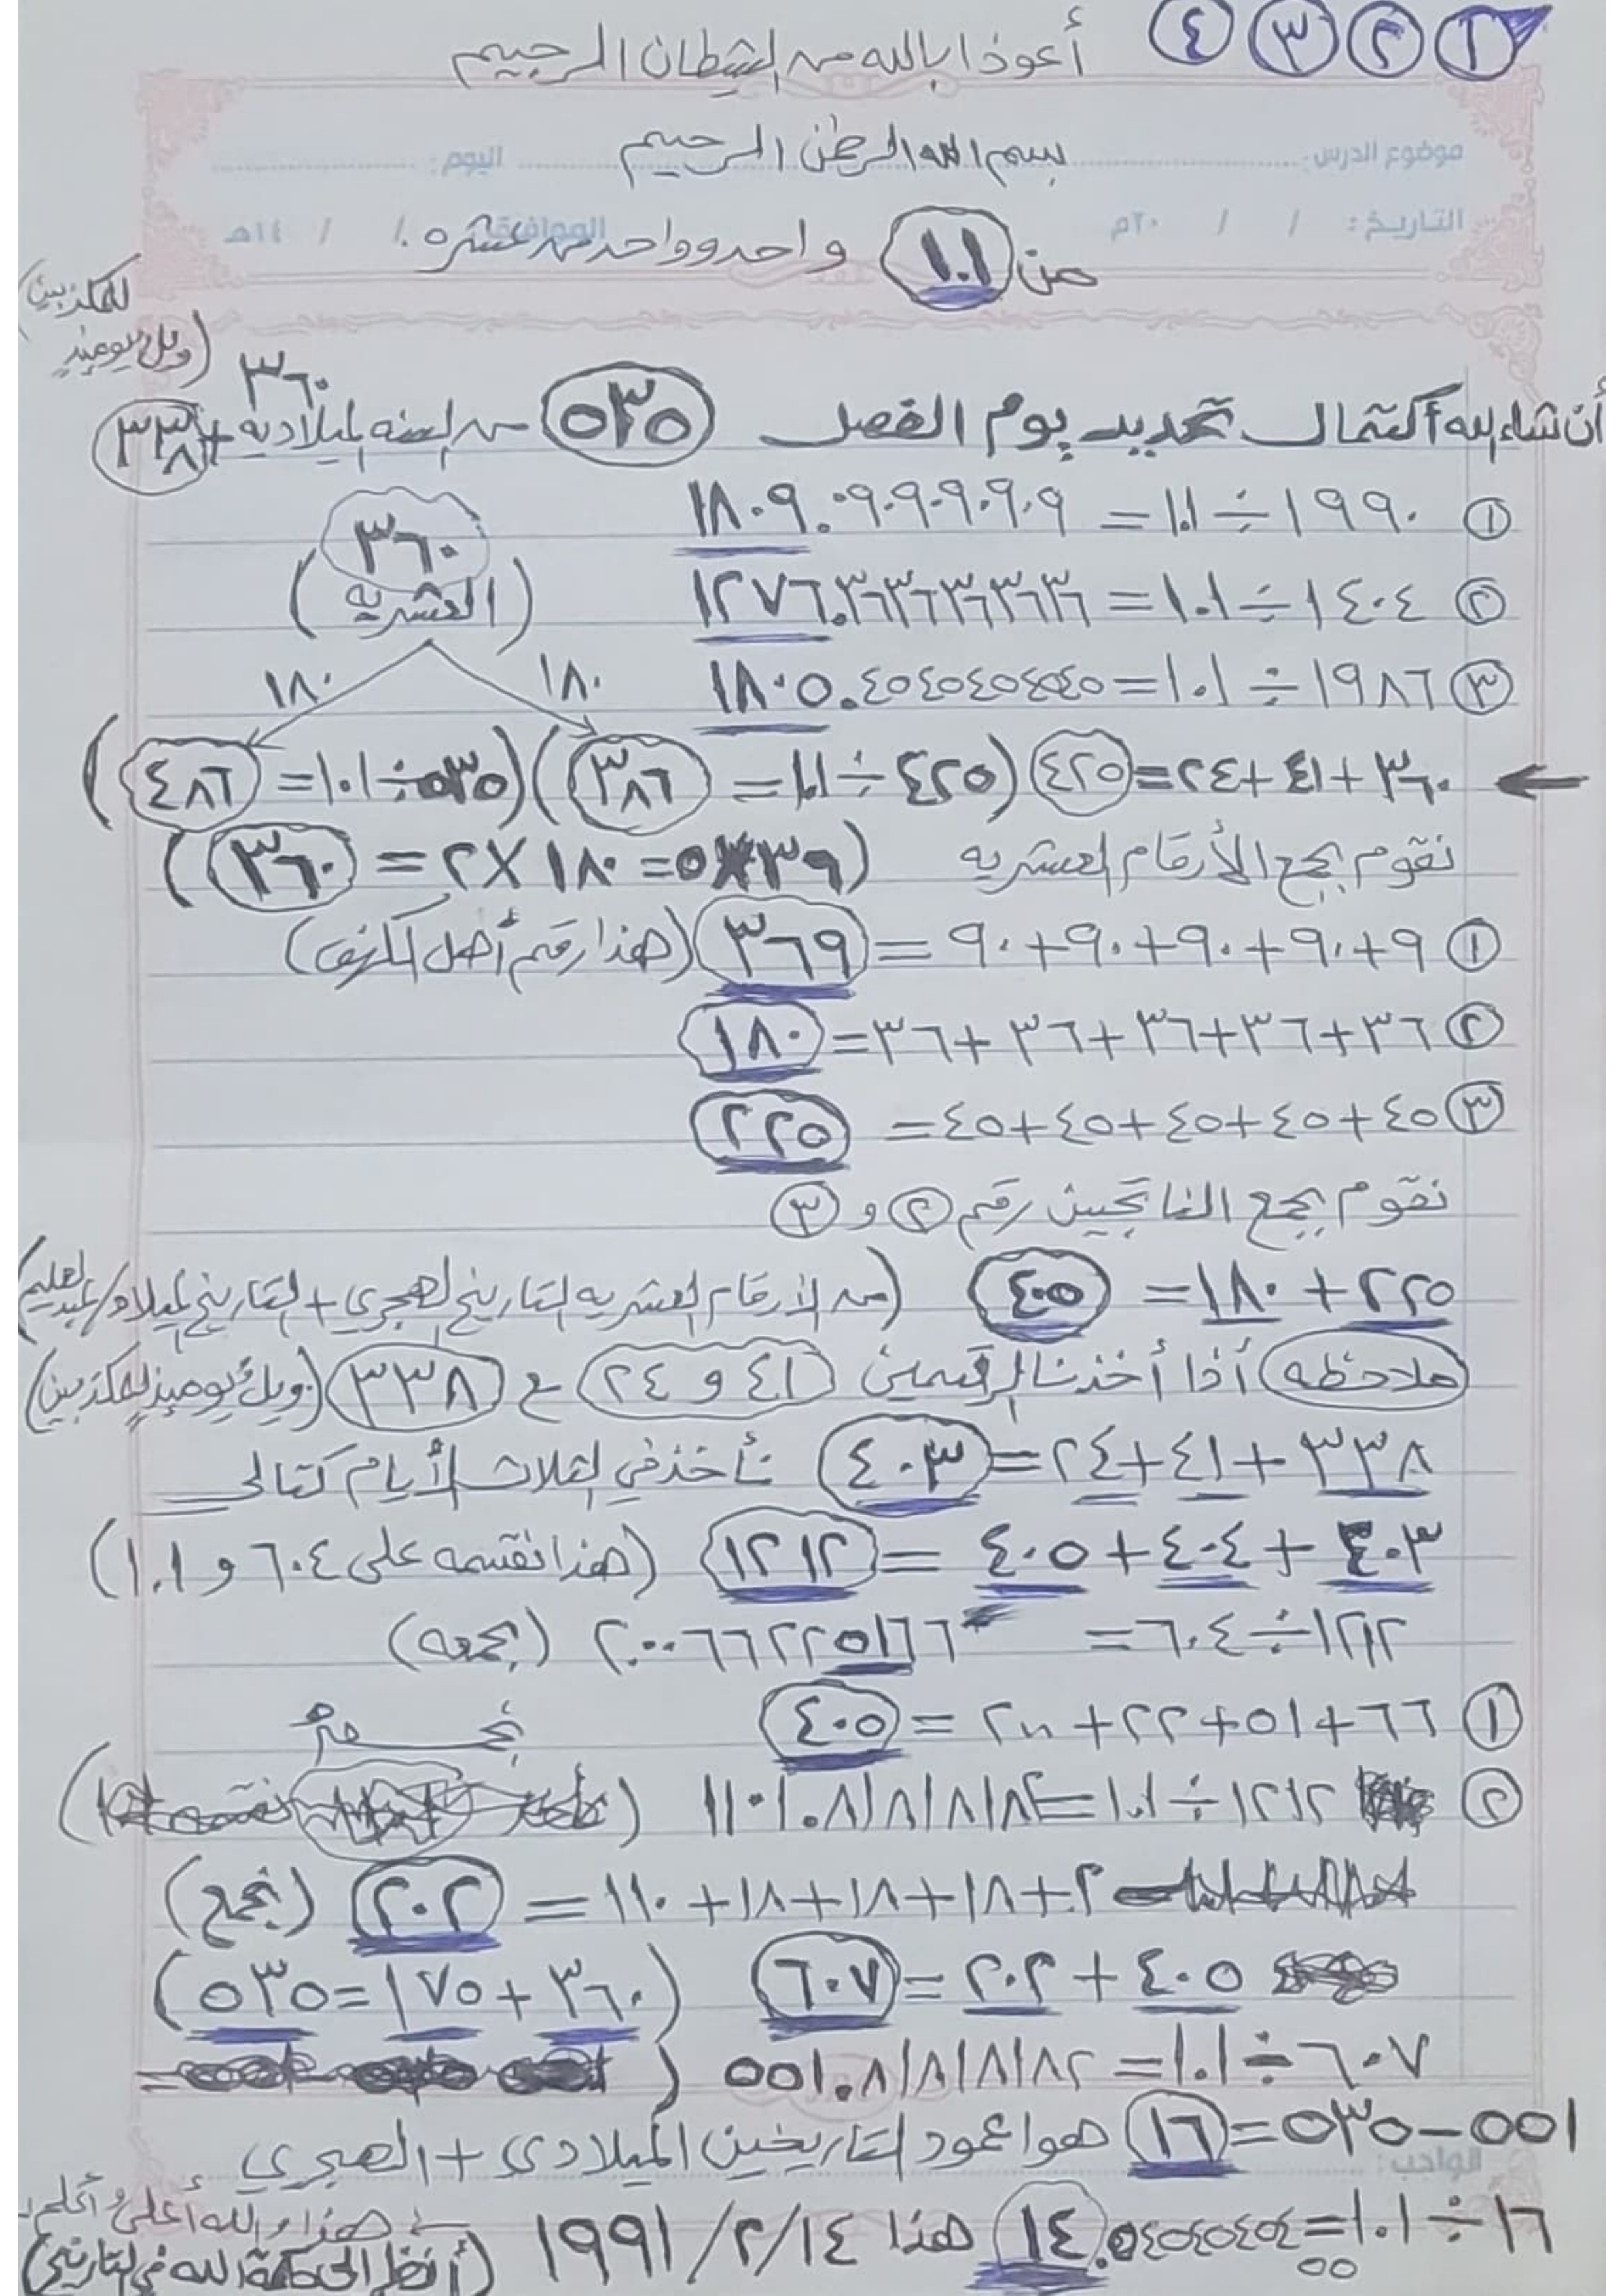 ١ ٢ ٣ ٤
أعوذ بالله من الشيطان الرجيم
بسم الله الرحمن الرحيم
موضوع الدرس: اليوم:
التاريخ: / / ٢٠م الموافق: / / ١٤هـ
من ١.١ واحد وواحد من عشره.
(ويل يومئذٍ للمكذبين)
أن شاء الله أكتمال تحديد يوم الفصل ٥٣٥ من السنه الميلاديه ٣٦٠ + ٣٣٨
١ ١٩٩٠ ÷ ١.١ = ١٨٠٩.٠٩٠٩٠٩٠٩٠٩
٢ ١٤٠٤ ÷ ١.١ = ١٢٧٦.٣٦٣٦٣٦٣٦٣٦
٣ ١٩٨٦ ÷ ١.١ = ١٨٠٥.٤٥٤٥٤٥٤٥٤٥
٣٦٠ (العشريه)
١٨٠ ١٨٠
٣٦٠ + ٤١ + ٢٤ = ٤٢٥ (٤٢٥ ÷ ١.١ = ٣٨٦) (٥٣٥ ÷ ١.١ = ٤٨٦)
نقوم بجمع الأرقام العشريه (٣٦ × ٥ = ١٨٠ × ٢ = ٣٦٠)
١ ٩ + ٩٠ + ٩٠ + ٩٠ + ٩٠ = ٣٦٩ (هذا رقم أهل الكهف)
٢ ٣٦ + ٣٦ + ٣٦ + ٣٦ + ٣٦ = ١٨٠
٣ ٤٥ + ٤٥ + ٤٥ + ٤٥ + ٤٥ = ٢٢٥
نقوم بجمع الناتجين رقم ٢ و ٣
٢٢٥ + ١٨٠ = ٤٠٥ (من الأرقام العشريه التاريخ الهجري + التاريخ الميلاد/
ملاحظه أذا أخذنا الرقمين ٤١ و ٢٤ ع ٣٣٨ (ويلٌ يومئذٍ للمكذبين)
٣٣٨ + ٤١ + ٢٤ = ٤٠٣ نأخذ في الثلاث الأيام كتالي
٤٠٣ + ٤٠٤ + ٤٠٥ = ١٢١٢ (هذا نقسمه على ٦٠٤ و ١.١)
١٢١٢ ÷ ٦٠٤ = ٢.٠٠٦٦٢٢٥١٦٦ (بجمعه)
١ ٦٦ + ٥١ + ٢٢ + ٢٦٦ = ٤٠٥
٢ ١٢١٢ ÷ ١.١ = ١١٠١.٨١٨١٨١٨٢
٢٠ + ١٨ + ١٨ + ١٨ + ١١٠ = ٢٠٢ (بجمع)
٤٠٥ + ٢٠٢ = ٦٠٧ (٣٦٠ + ١٧٥ = ٥٣٥)
٦٠٧ ÷ ١.١ = ٥٥١.٨١٨١٨١٨٢
٥٥١ - ٥٣٥ = ١٦ هوا عمود التاريخين الميلادي + الهجري
الواجب:
١٦ ÷ ١.١ = ١٤.٥٤٥٤٥٤٥٤ هذا ١٤/٢/١٩٩١
في هذا والله أعلى وأعلم
(أنظر الى حكمة الله في التاريخ)